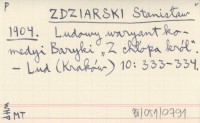 P
ZDZIARSKI Stanisław
1904. Ludowy waryant ko-
medyi Baryki "Z chłopa król".
- Lud (Kraków) 10: 333-334.
MT